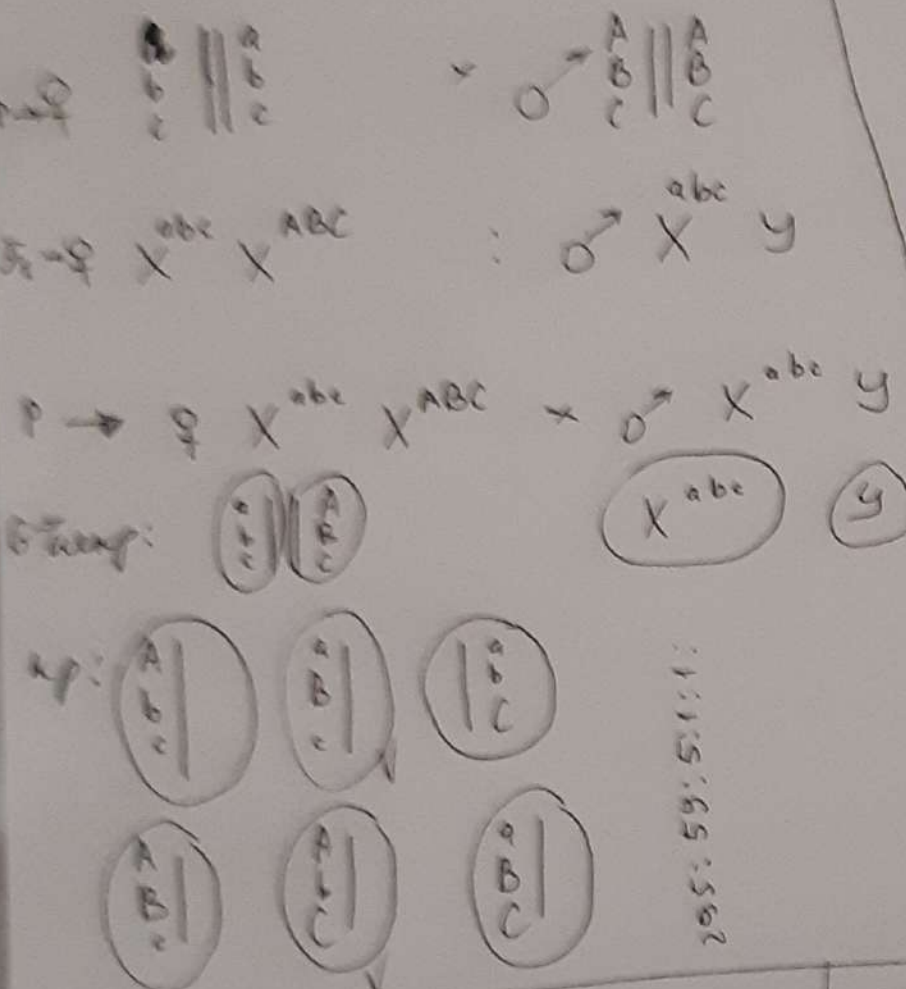 ♀ a b c ||| a b c × ♂ A B C || A B C
♀ X^abc X^ABC : ♂ X^abc y
P → ♀ X^abc X^ABC × ♂ X^abc y
a b c || A B C X^abc y
кр: A b c | a B c | | a b C
A B c | A b C | a B C |